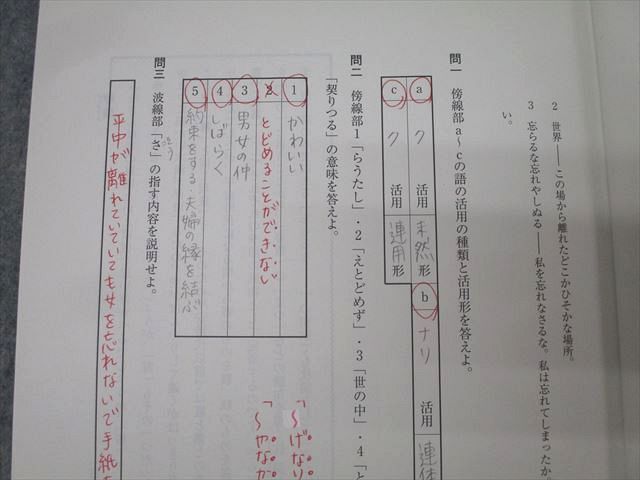 2 世界――この場から離れたどこかひそやかな場所。
3 忘らるな忘れやしぬる――私を忘れなさるな。私は忘れてしまったか
い。
問一 傍線部a～cの語の活用の種類と活用形を答えよ。
a ク 活用 未然 形
b ナリ 活用 連体
c ク 活用 連用 形
問二 傍線部1「らうたし」・2「えとどめず」・3「世の中」・4「と
「契りつる」の意味を答えよ。
1 かわいい
2 とどめることができない
3 男女の仲
4 しばらく
5 約束をする・夫婦の縁を結ぶ
「～げなり
「～やなか
問三 波線部「さ」の指す内容を説明せよ。
そう
平中が離れていても女を忘れないで手紙